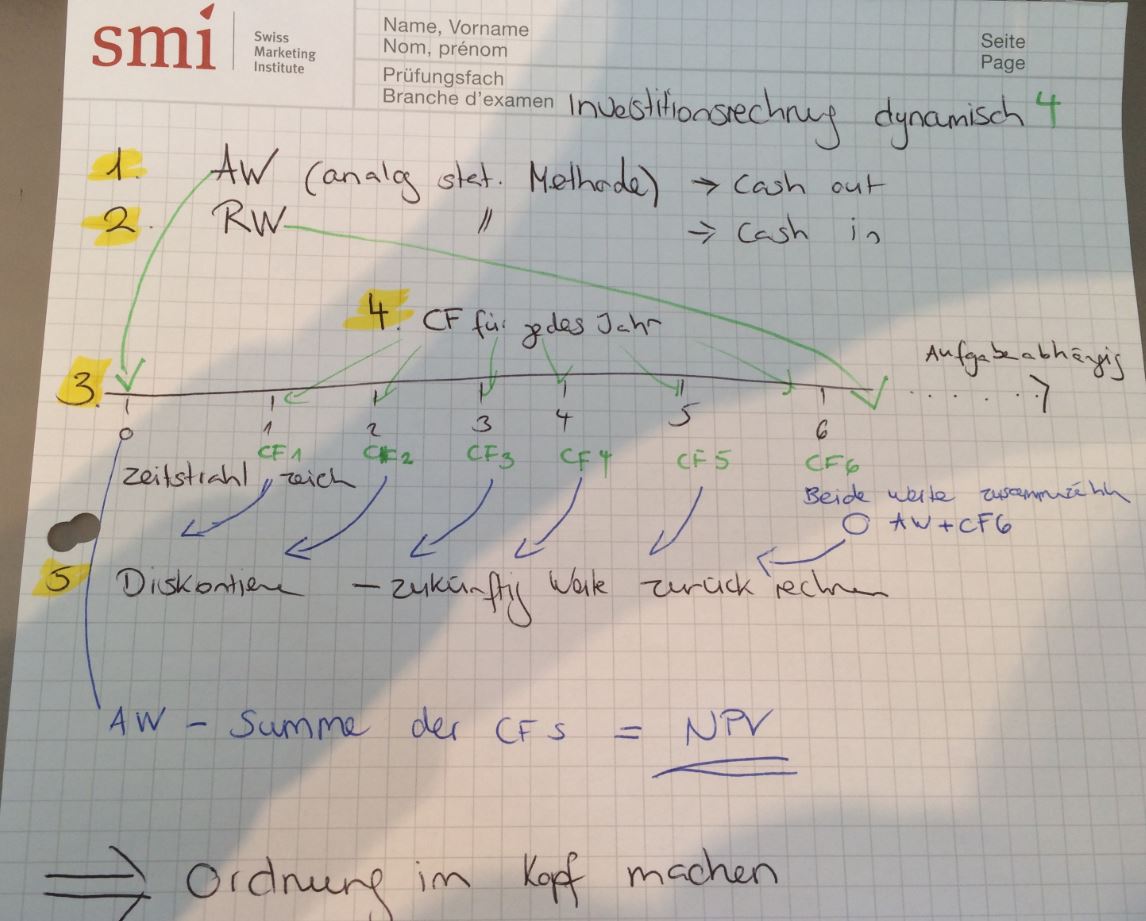 smi
Swiss
Marketing
Institute
Name, Vorname
Nom, prénom
Seite
Page
Prüfungsfach
Branche d'examen Investitionsrechnung dynamisch 4
1. AW (analog stat. Methode) → Cash out
2. RW " → Cash in
4. CF für jedes Jahr
Aufgabeabhängig
3.
0 1 2 3 4 5 6 . . . . . .
CF1 CF2 CF3 CF4 CF5 CF6
Zeitstrahl zeich
Beide Werte zusammenzähln
AW + CF6
5 Diskontiere – zukünftig Werte zurück rechnen
AW – Summe der CFs = NPV
⇒ Ordnung im Kopf machen